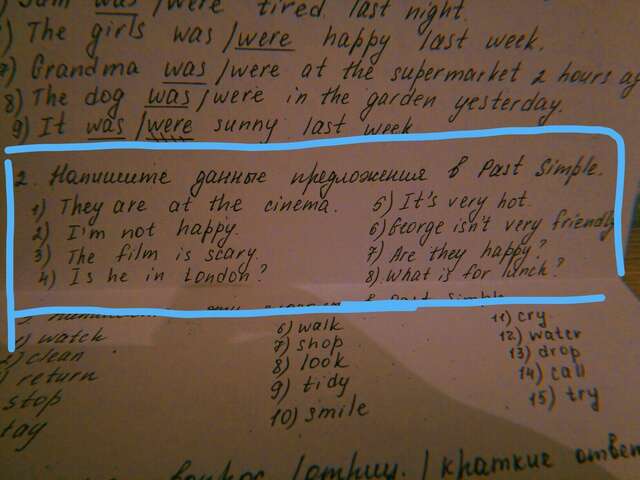 was /were tired last night.
The girls was /were happy last week.
7) Grandma was /were at the supermarket 2 hours ag
8) The dog was /were in the garden yesterday.
9) It was /were sunny last week
2. Напишите данные предложения в Past Simple.
1) They are at the cinema.
2) I'm not happy.
3) The film is scary.
4) Is he in London?
5) It's very hot.
6) George isn't very friendly
7) Are they happy?
8) What is for lunch?
в Past Simple
1) watch
2) clean
return
stop
tay
6) walk
7) shop
8) look
9) tidy
10) smile
11) cry
12) water
13) drop
14) call
15) try
/краткие ответ